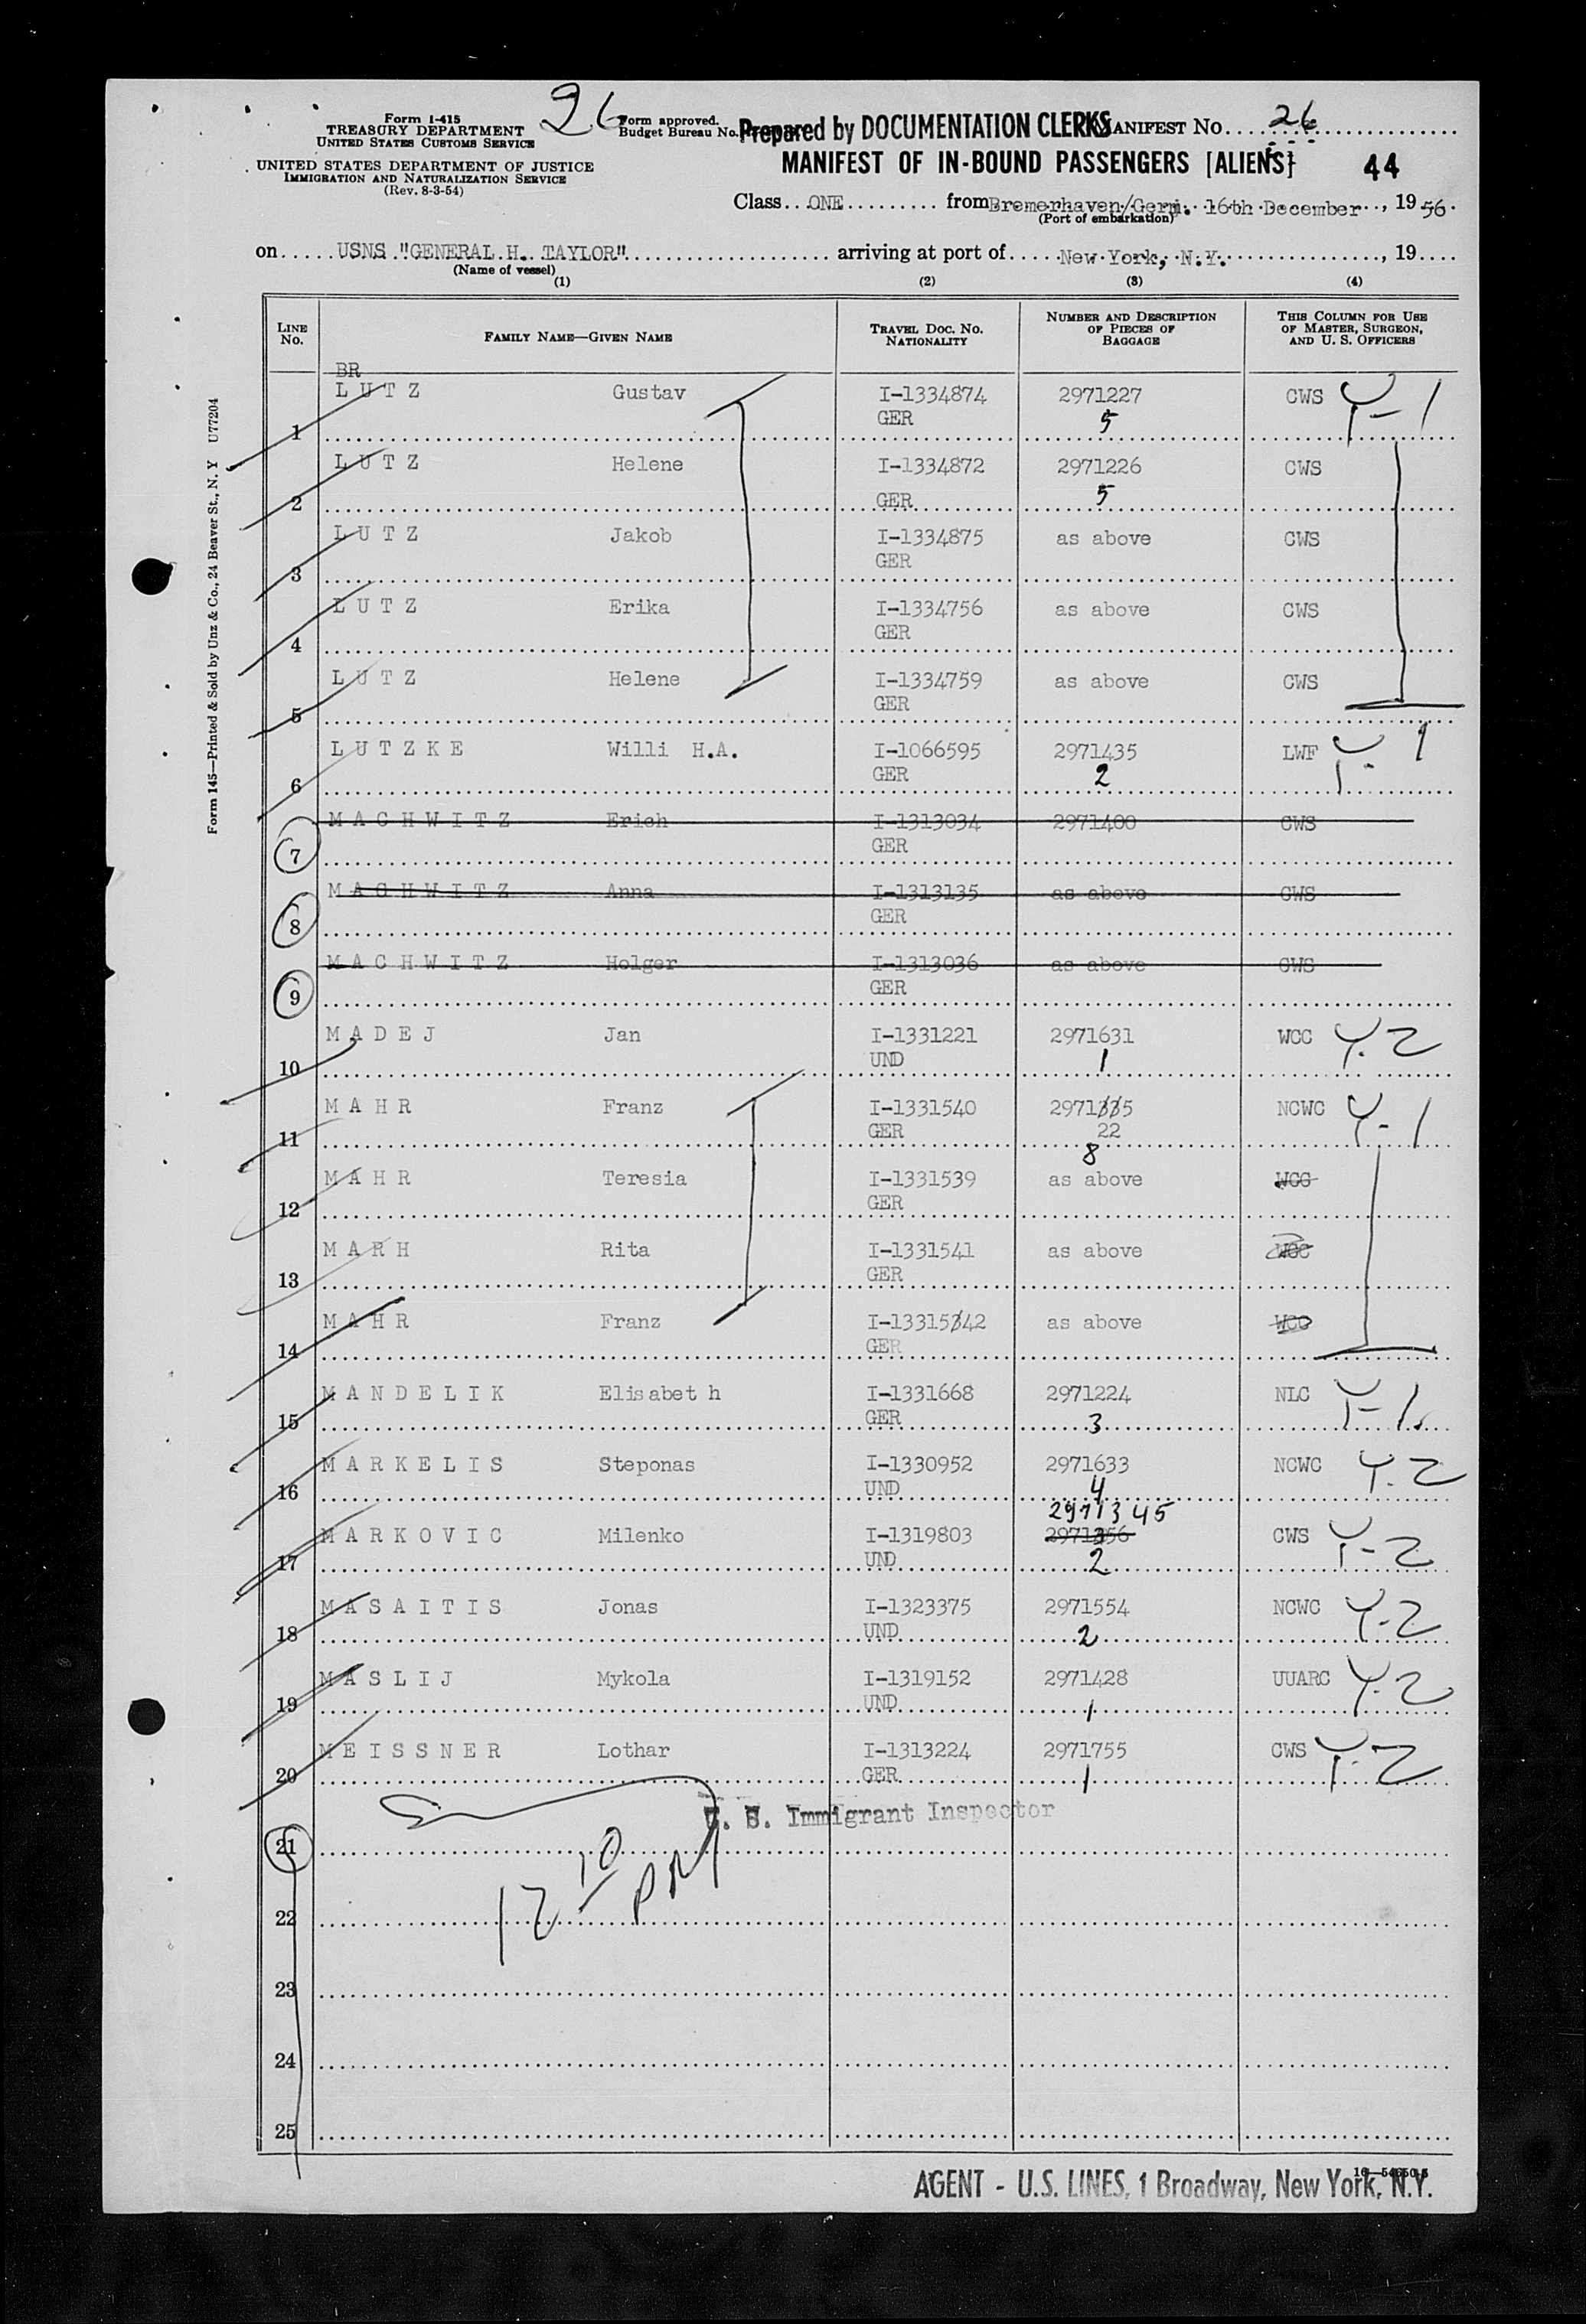 Form I-415
TREASURY DEPARTMENT
UNITED STATES CUSTOMS SERVICE
UNITED STATES DEPARTMENT OF JUSTICE
IMMIGRATION AND NATURALIZATION SERVICE
(Rev. 8-3-54)
26
Form approved.
Budget Bureau No.
Prepared by DOCUMENTATION CLERKS
MANIFEST No. 26
MANIFEST OF IN-BOUND PASSENGERS [ALIENS] 44
Class ONE from Bremerhaven/Germ. 16th December, 1956.
(Port of embarkation)
on USNS "GENERAL H. TAYLOR" arriving at port of New York, N.Y., 19
(Name of vessel)
(1) (2) (3) (4)
LINE No. FAMILY NAME—GIVEN NAME TRAVEL DOC. No. NATIONALITY NUMBER AND DESCRIPTION OF PIECES OF BAGGAGE THIS COLUMN FOR USE OF MASTER, SURGEON, AND U. S. OFFICERS
BR
1 LUTZ Gustav I-1334874 GER 2971227 5 CWS Y-1
2 LUTZ Helene I-1334872 GER 2971226 5 CWS
3 LUTZ Jakob I-1334875 GER as above CWS
4 LUTZ Erika I-1334756 GER as above CWS
5 LUTZ Helene I-1334759 GER as above CWS
6 LUTZKE Willi H.A. I-1066595 GER 2971435 2 LWF Y-1
7 MACHWITZ Erich I-1313034 GER 2971400 CWS
8 MACHWITZ Anna I-1313135 GER as above CWS
9 MACHWITZ Holger I-1313036 GER as above CWS
10 MADEJ Jan I-1331221 UND 2971631 1 WCC Y-2
11 MAHR Franz I-1331540 GER 2971335 22 8 NCWC Y-1
12 MAHR Teresia I-1331539 GER as above WCC
13 MARH Rita I-1331541 GER as above WCC
14 MAHR Franz I-1331542 GER as above WCC
15 MANDELIK Elisabet h I-1331668 GER 2971224 3 NLC Y-1
16 MARKELIS Steponas I-1330952 UND 2971633 4 NCWC Y-2
17 MARKOVIC Milenko I-1319803 UND 2971345 2971356 2 CWS Y-2
18 MASAITIS Jonas I-1323375 UND 2971554 2 NCWC Y-2
19 MASLIJ Mykola I-1319152 UND 2971428 1 UUARC Y-2
20 MEISSNER Lothar I-1313224 GER 2971755 1 CWS Y-2
U. S. Immigrant Inspector
21
12 10 PM
22
23
24
25
AGENT - U.S. LINES, 1 Broadway, New York, N.Y.
Form 145—Printed & Sold by Unz & Co., 24 Beaver St., N. Y U77204